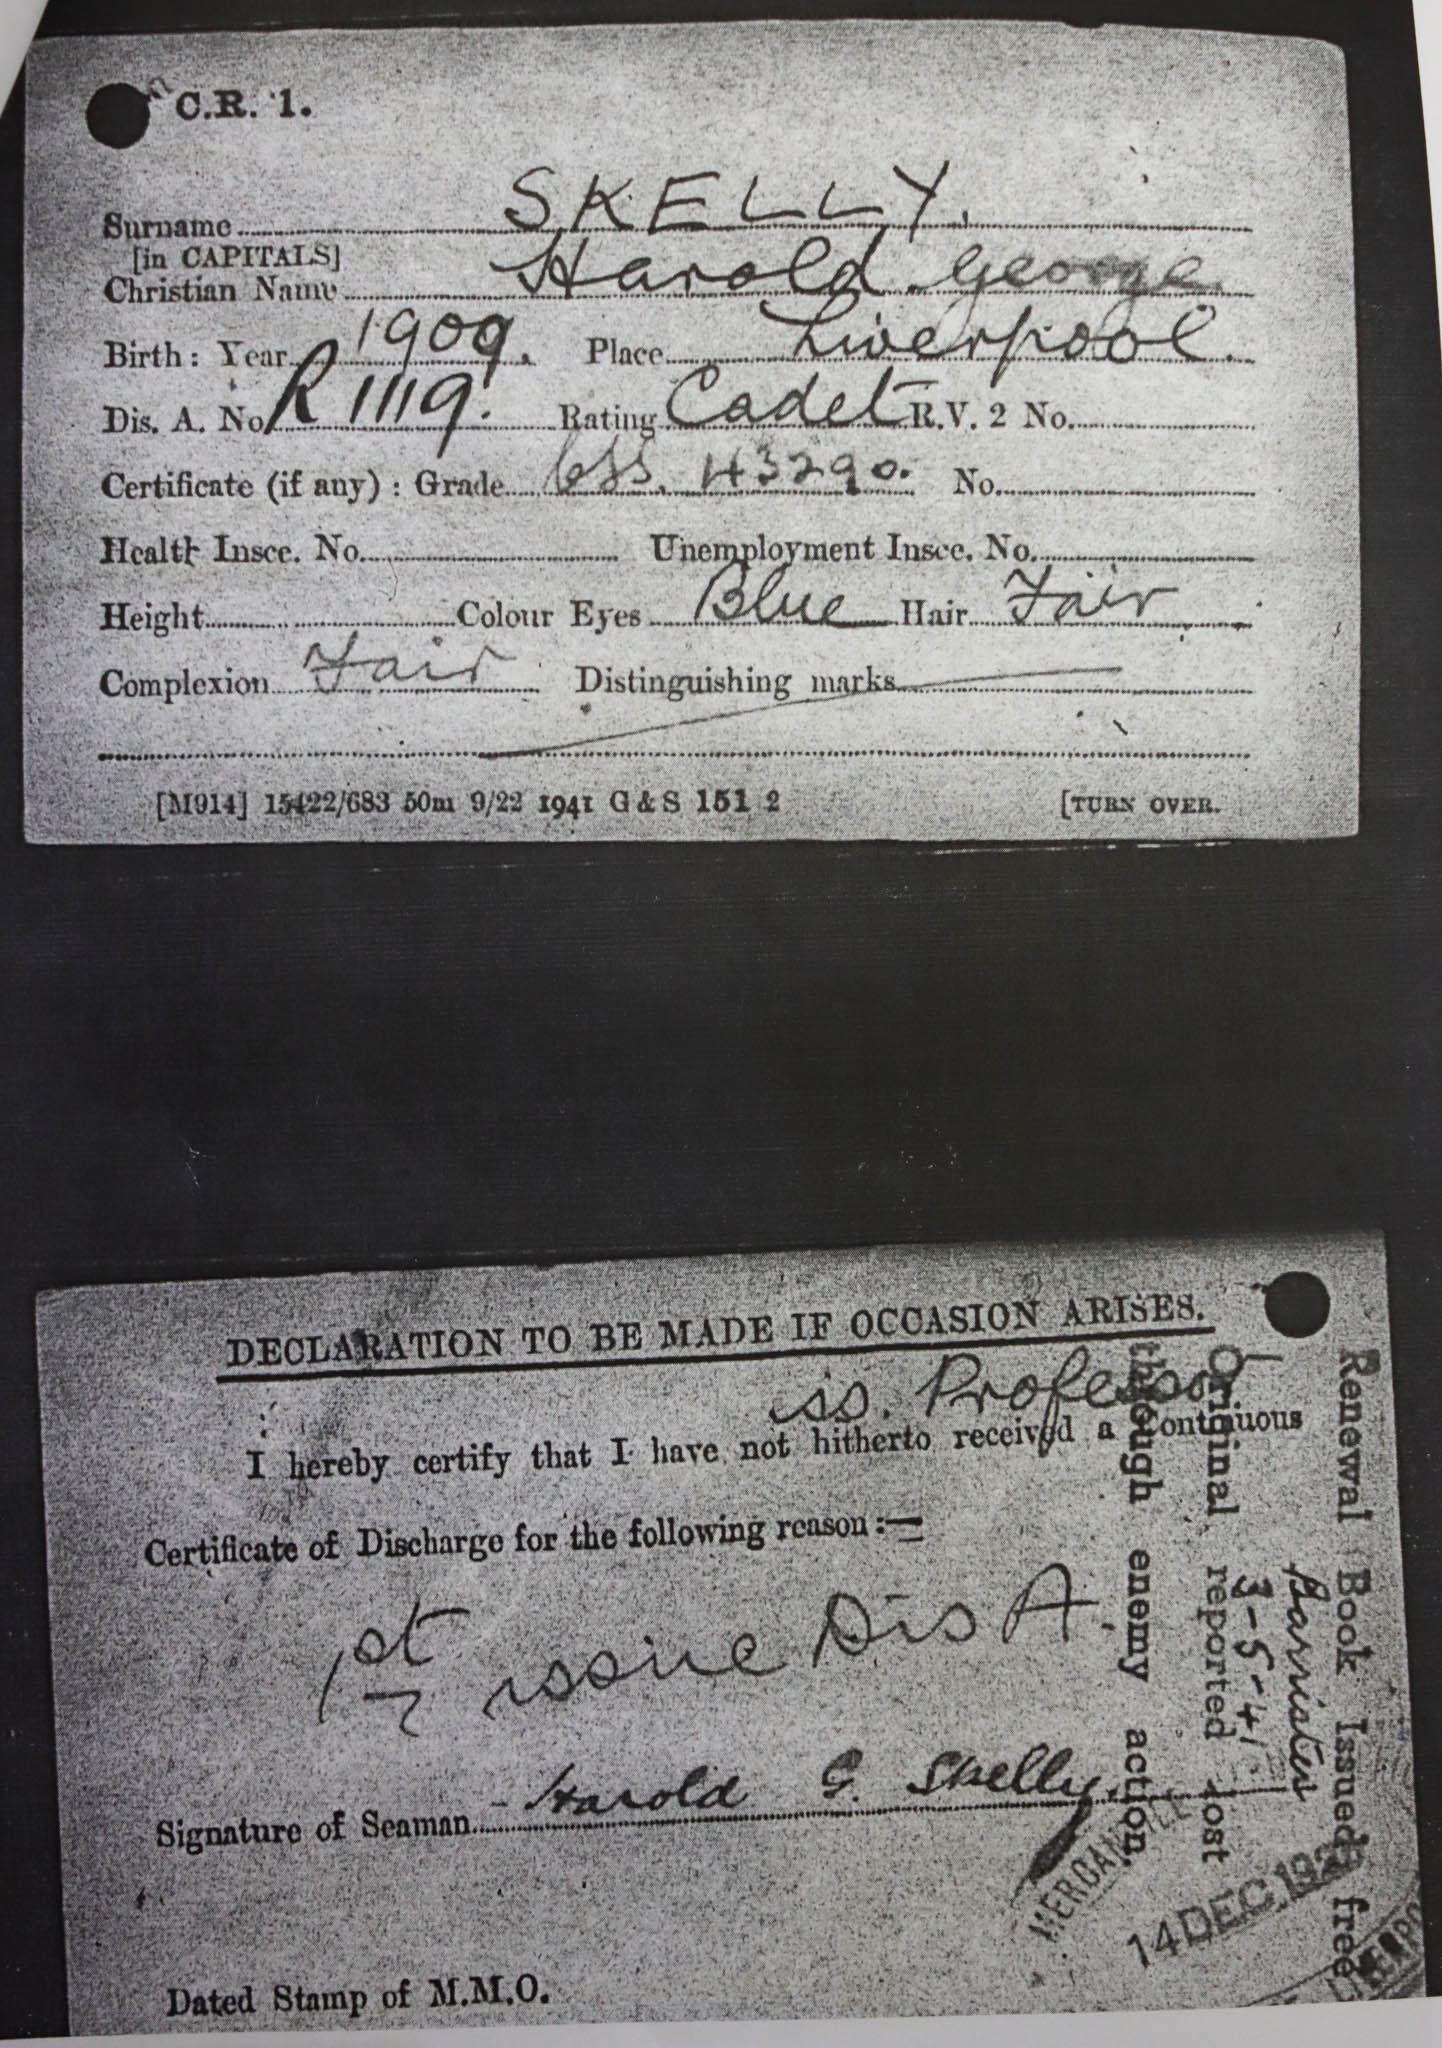 C.R. 1.
Surname SKELLY.
[in CAPITALS]
Christian Name Harold George.
Birth: Year 1909. Place Liverpool.
Dis. A. No. R 11119. Rating Cadet R.V. 2 No.
Certificate (if any): Grade 43290. No.
Health Insce. No. Unemployment Insce. No.
Height Colour Eyes Blue Hair Fair
Complexion Fair Distinguishing marks
[M914] 15422/683 50m 9/22 1941 G & S 151 2 [TURN OVER.
DECLARATION TO BE MADE IF OCCASION ARISES.
ss. Professor
I hereby certify that I have not hitherto received a Continuous
Certificate of Discharge for the following reason:—
1st issue Dis A
Signature of Seaman Harold G. Skelly.
Dated Stamp of M.M.O.
Renewal Book Issued free
Barrister
3-5-41
Original reported lost
through enemy action
MERCANTILE
14 DEC. 192